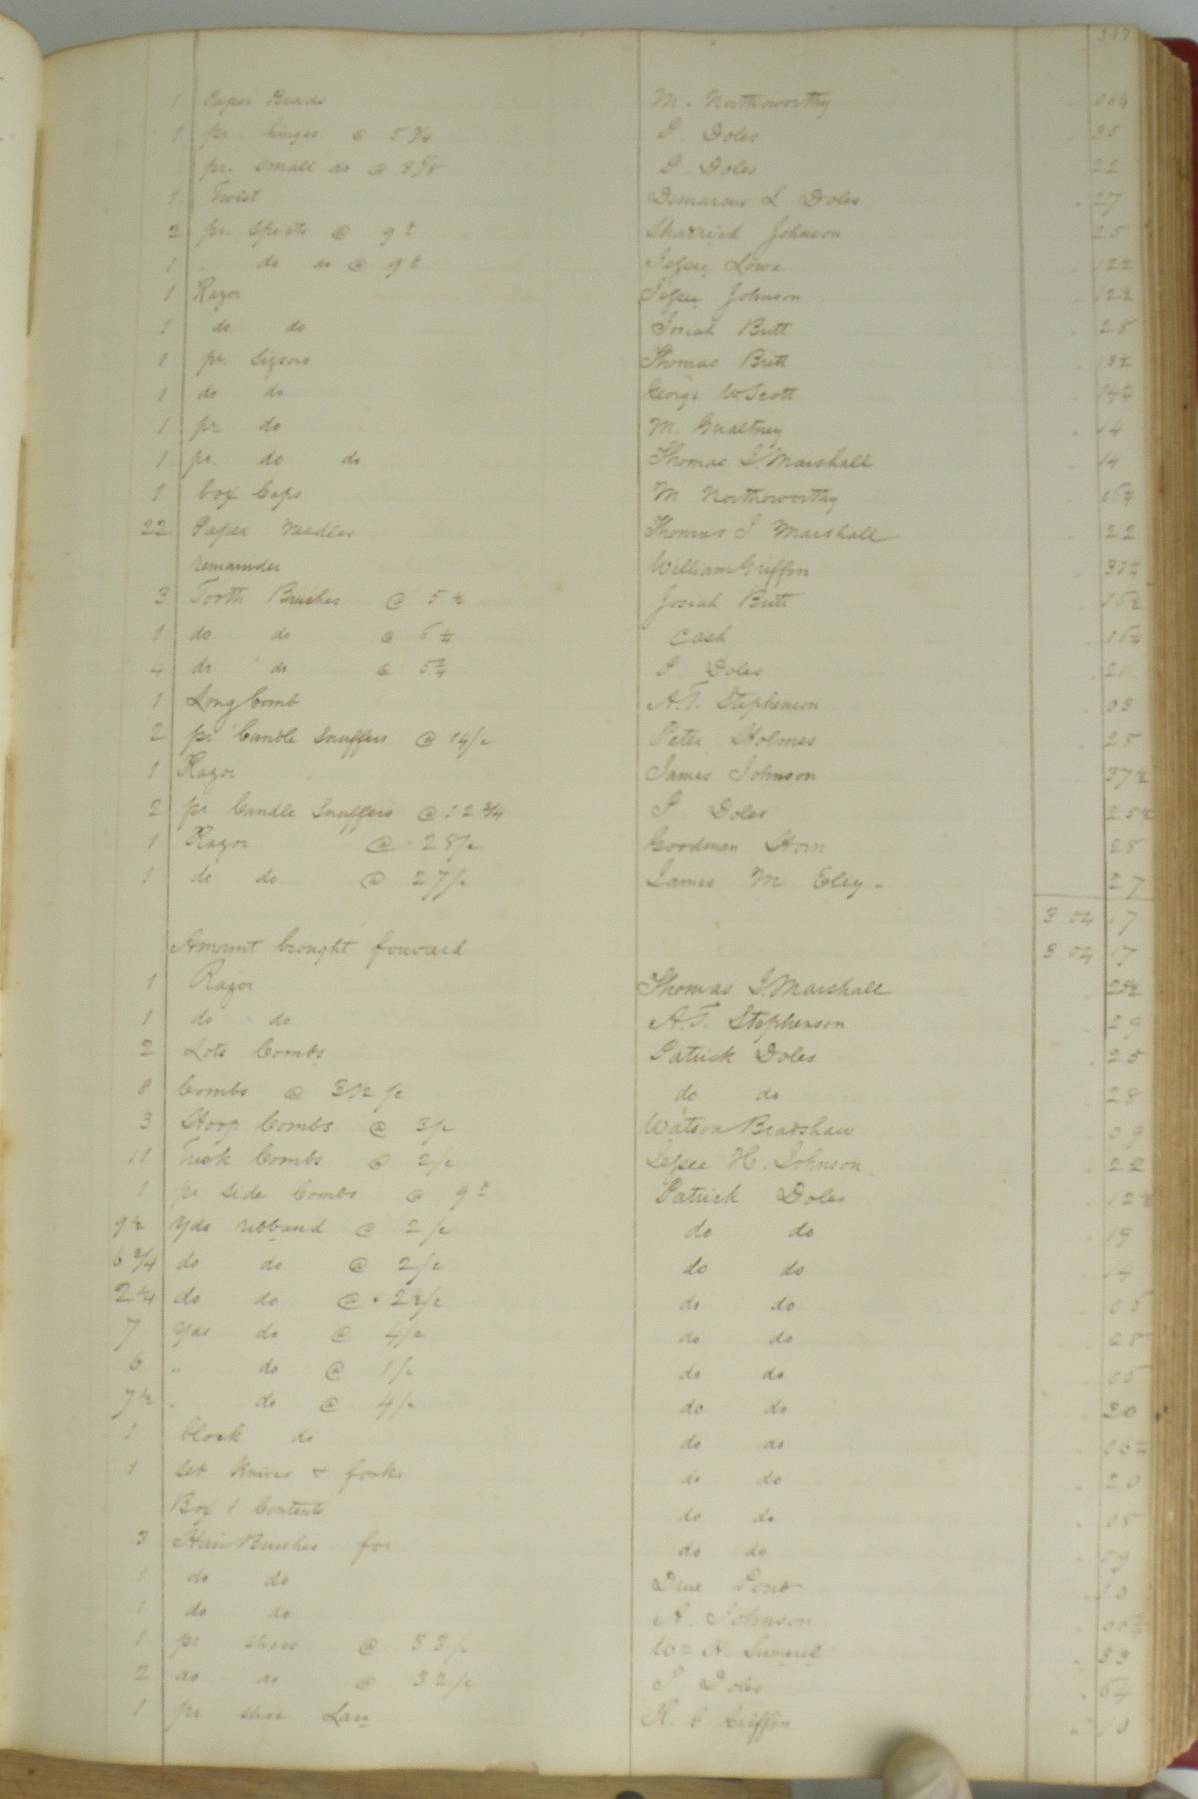 337
1 Paper Beads M. Northworthy 06¼
1 pr. hinges @ 5¾ P Doles
pr. small do @ 3/8 P. Doles 22
1 Twist Demarcus L Doles 27
2 pr. Spects @ 9½ Shadrick Johnson 25
1 " do do @ 9½ Jesse Lowe 12½
1 Razor Jesse Johnson 12½
1 do do Josiah Britt 28
1 pr. Sizsors Thomas Britt 13½
1 do do George W Scott 14½
1 pr do M. Gwaltney 14
1 pr. do do Thomas J. Marshall 14
1 box Caps M Northworthy 16¼
22 Paper Needles Thomas J Marshall 22
remainder William Griffin
3 Tooth Brushes @ 5½ Josiah Britt 16½
1 do do @ 6¼ Cash
4 do do @ 5¼ P Doles 21
1 Long Comb A.T. Stephenson 03
2 pr Candle Snuffers @ 14/c Peter Holmes 28
1 Razor James Johnson 37½
2 pr Candle Snuffers @ 12¾ P Doles 25½
1 Razor @ 28/c Goodman Horn 28
1 do do @ 27/c James M Eley - 27
304 17
Amount brought forward 304 17
1 Razor Thomas J Marshall
1 do do A.T. Stephenson 29
2 Lots Combs Patrick Doles 25
8 Combs @ 3½/c do do 28
3 Hoop Combs @ 3/c Watson Bradshaw 09
11 Tuck Combs @ 2/c Jesse H. Johnson 22
1 pr Side Combs @ 9½ Patrick Doles 12½
9½ yds ribband @ 2/c do do 19
6¾ do do @ 2/c do do 14
2¼ do do @ 2½/c do do 05
7 Yds do @ 4/c do do 28
6 " do @ 1/c do do 06
7½ " do @ 4/c do do 30
1 block do do do 06¼
1 set Knives & forks do do 20
Box & Contents do do 05
3 Hair Brushes for do do 09
1 do do Drue 10
1 do do A. Johnson 06¼
1 pr shoes @ 33/c Wm H. 33
2 do do @ 32/c P Doles 64
1 pr shoe R. Griffin 10